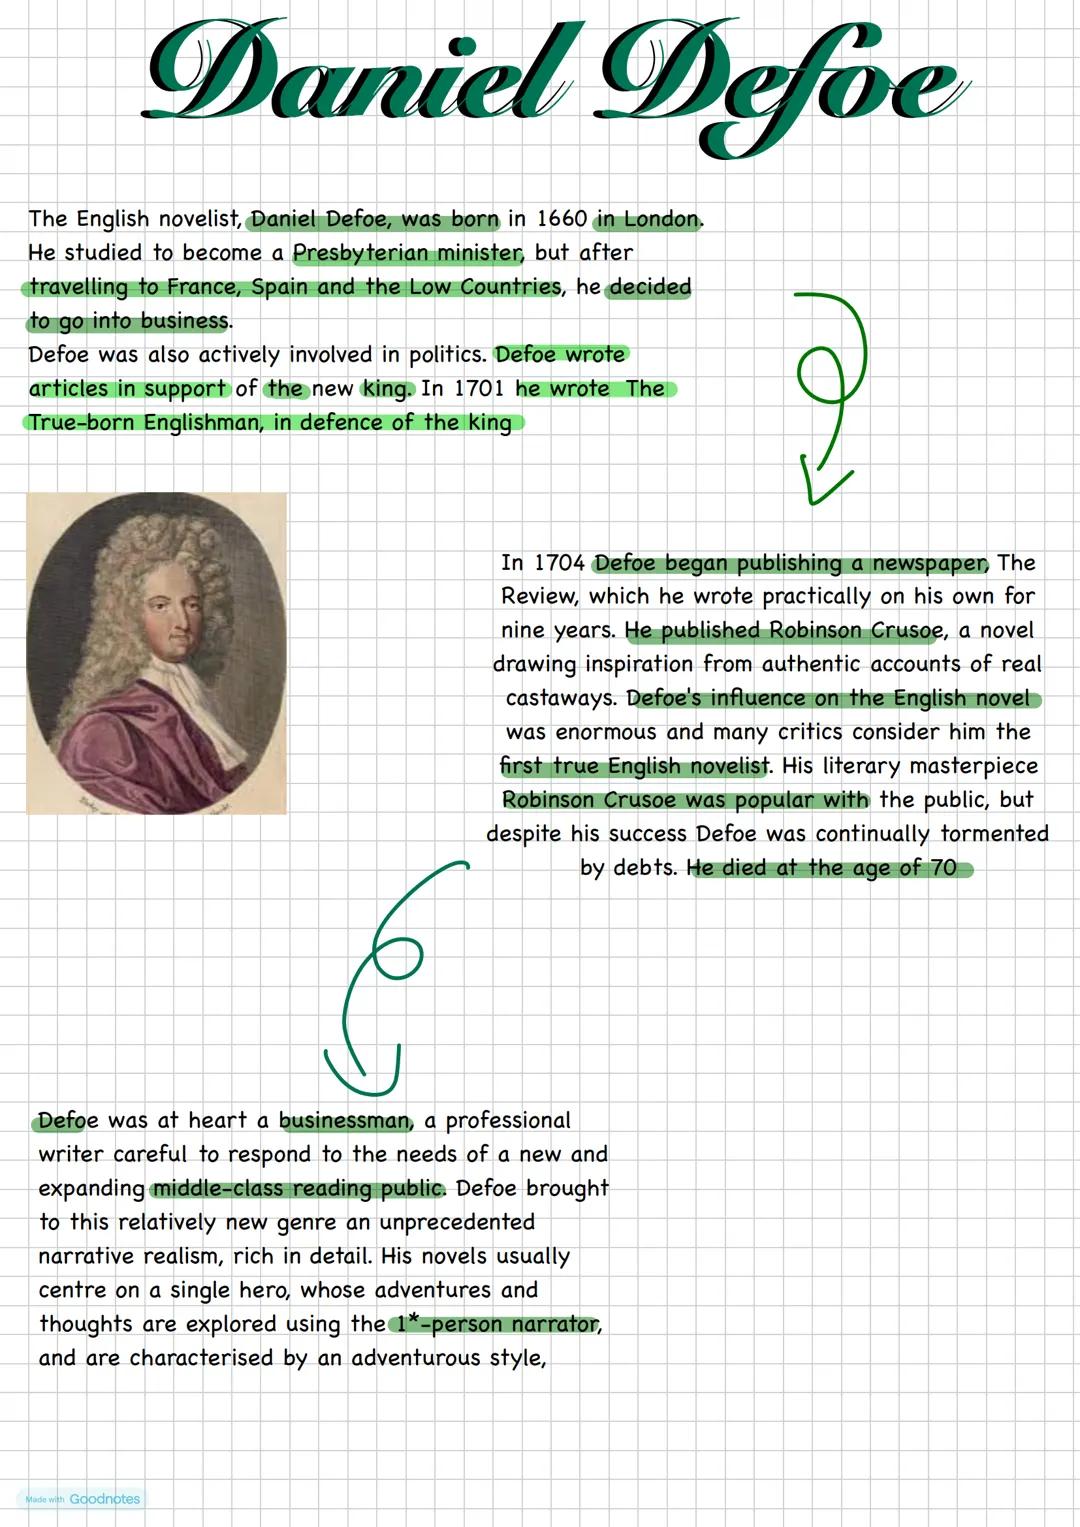 Daniel Defoe
The English novelist, Daniel Defoe, was born in 1660 in London.
He studied to become a Presbyterian minister, but after
travelling to France, Spain and the Low Countries, he decided
to go into business.
Defoe was also actively involved in politics. Defoe wrote
articles in support of the new king. In 1701 he wrote The
True-born Englishman, in defence of the king
In 1704 Defoe began publishing a newspaper, The
Review, which he wrote practically on his own for
nine years. He published Robinson Crusoe, a novel
drawing inspiration from authentic accounts of real
castaways. Defoe's influence on the English novel
was enormous and many critics consider him the
first true English novelist. His literary masterpiece
Robinson Crusoe was popular with the public, but
despite his success Defoe was continually tormented
by debts. He died at the age of 70
Defoe was at heart a businessman, a professional
writer careful to respond to the needs of a new and
expanding middle-class reading public. Defoe brought
to this relatively new genre an unprecedented
narrative realism, rich in detail. His novels usually
centre on a single hero, whose adventures and
thoughts are explored using the 1*-person narrator,
and are characterised by an adventurous style,
Made with Goodnotes